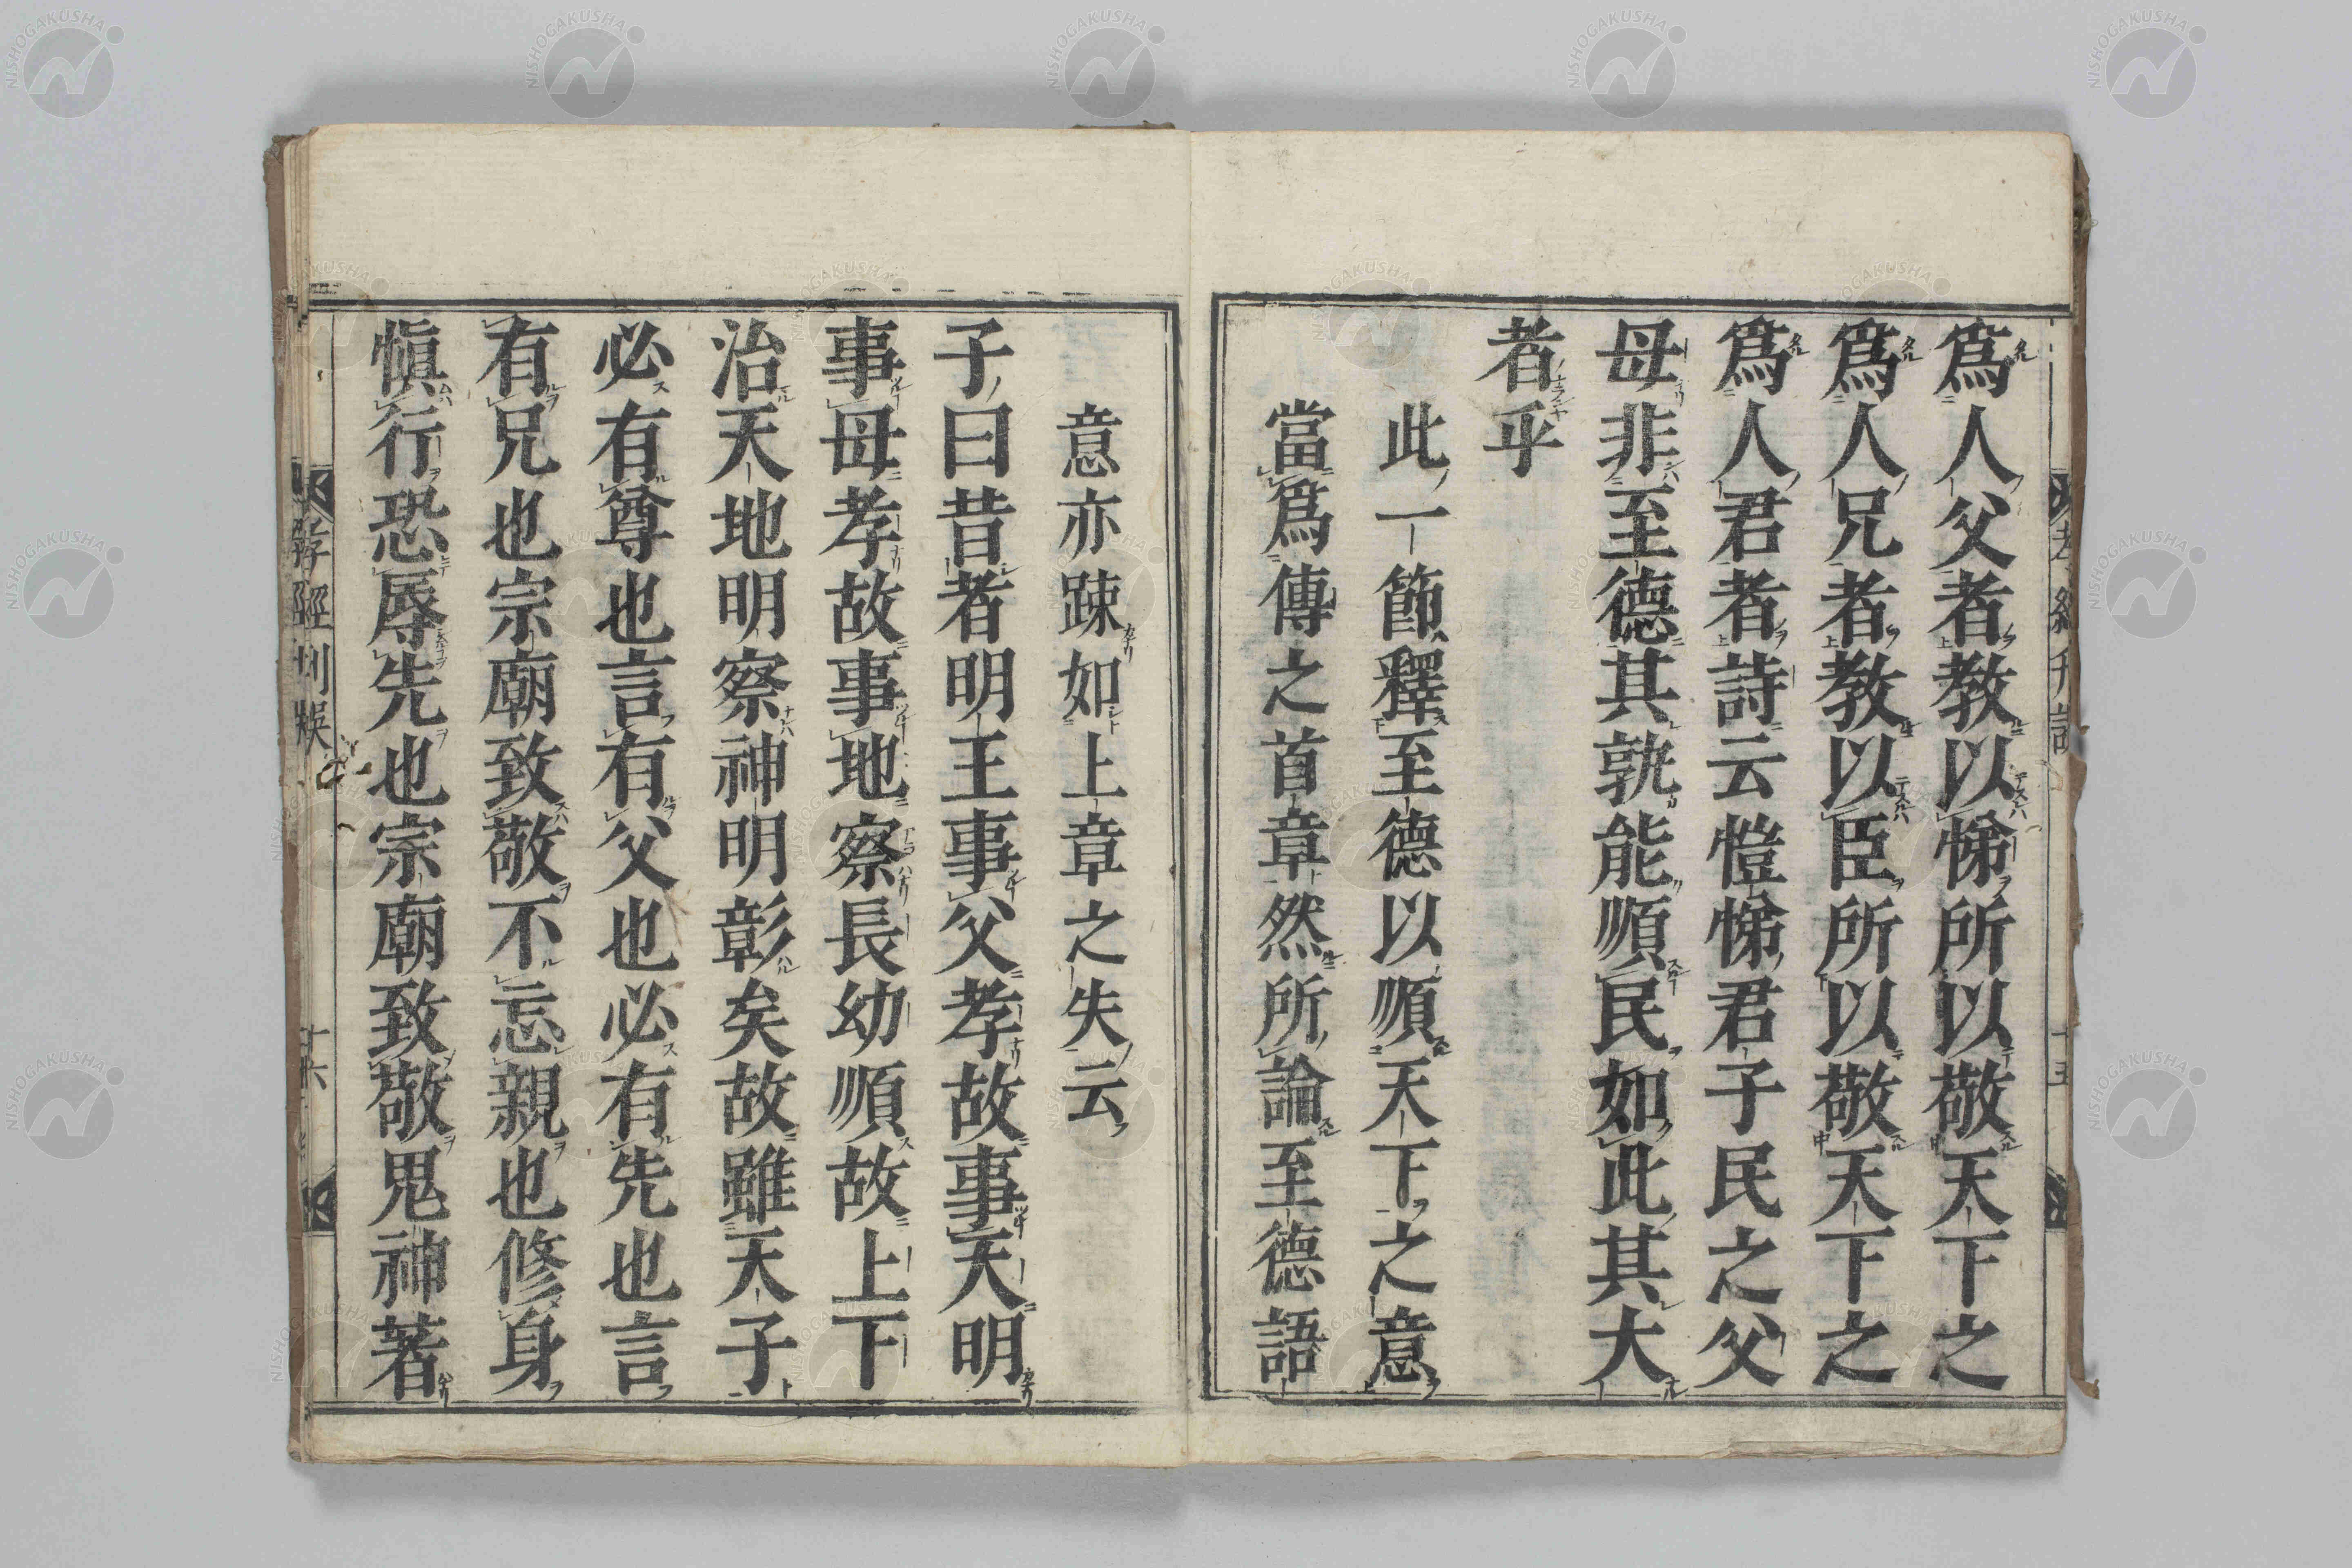 爲人父者教以悌所以敬天下之
爲人兄者教以臣所以敬天下之
爲人君者詩云愷悌君子民之父
母非至德其孰能順民如此其大
者乎
此一節釋至德以順天下之意
當爲傳之首章然所論至德語
意亦疎如上章之失云
子曰昔者明王事父孝故事天明
事母孝故事地察長幼順故上下
治天地明察神明彰矣故雖天子
必有尊也言有父也必有先也言
有兄也宗廟致敬不忘親也修身
愼行恐辱先也宗廟致敬鬼神著
孝經刊誤
十六
NISHOGAKUSHA